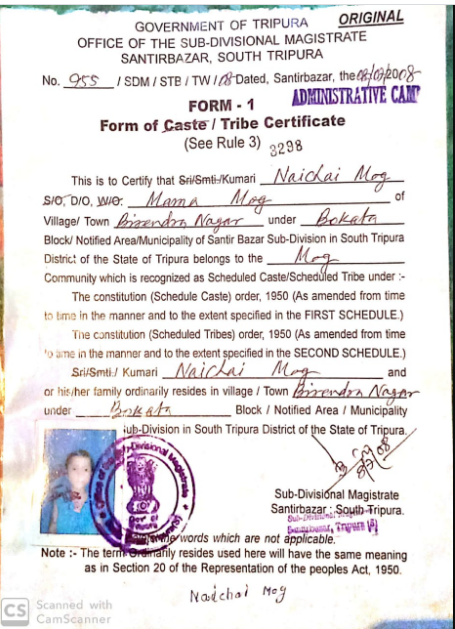 GOVERNMENT OF TRIPURA ORIGINAL
OFFICE OF THE SUB-DIVISIONAL MAGISTRATE
SANTIRBAZAR, SOUTH TRIPURA
No. 955 / SDM / STB / TW / 08 Dated, Santirbazar, the 08/07/2008
ADMINISTRATIVE CAMP
FORM - 1
Form of Caste / Tribe Certificate
(See Rule 3) 3298
This is to Certify that Sri/Smti-/Kumari Naichai Mog
S/O, D/O, W/O: Mama Mog of
Village/ Town Birendra Nagar under Bokafa
Block/ Notified Area/Municipality of Santir Bazar Sub-Division in South Tripura
District of the State of Tripura belongs to the Mog
Community which is recognized as Scheduled Caste/Scheduled Tribe under :-
The constitution (Schedule Caste) order, 1950 (As amended from time
to time in the manner and to the extent specified in the FIRST SCHEDULE.)
The constitution (Scheduled Tribes) order, 1950 (As amended from time
to time in the manner and to the extent specified in the SECOND SCHEDULE.)
Sri/Smti-/ Kumari Naichai Mog and
or his/her family ordinarily resides in village / Town Birendra Nagar
under Bokafa Block / Notified Area / Municipality
ub-Division in South Tripura District of the State of Tripura.
Sub-Divisional Magistrate
Santirbazar : South-Tripura.
Sub-Divisional
Santirbazar, Tripura
the words which are not applicable.
Note :- The term Ordinarily resides used here will have the same meaning
as in Section 20 of the Representation of the peoples Act, 1950.
Naichai Mog
CS Scanned with
CamScanner